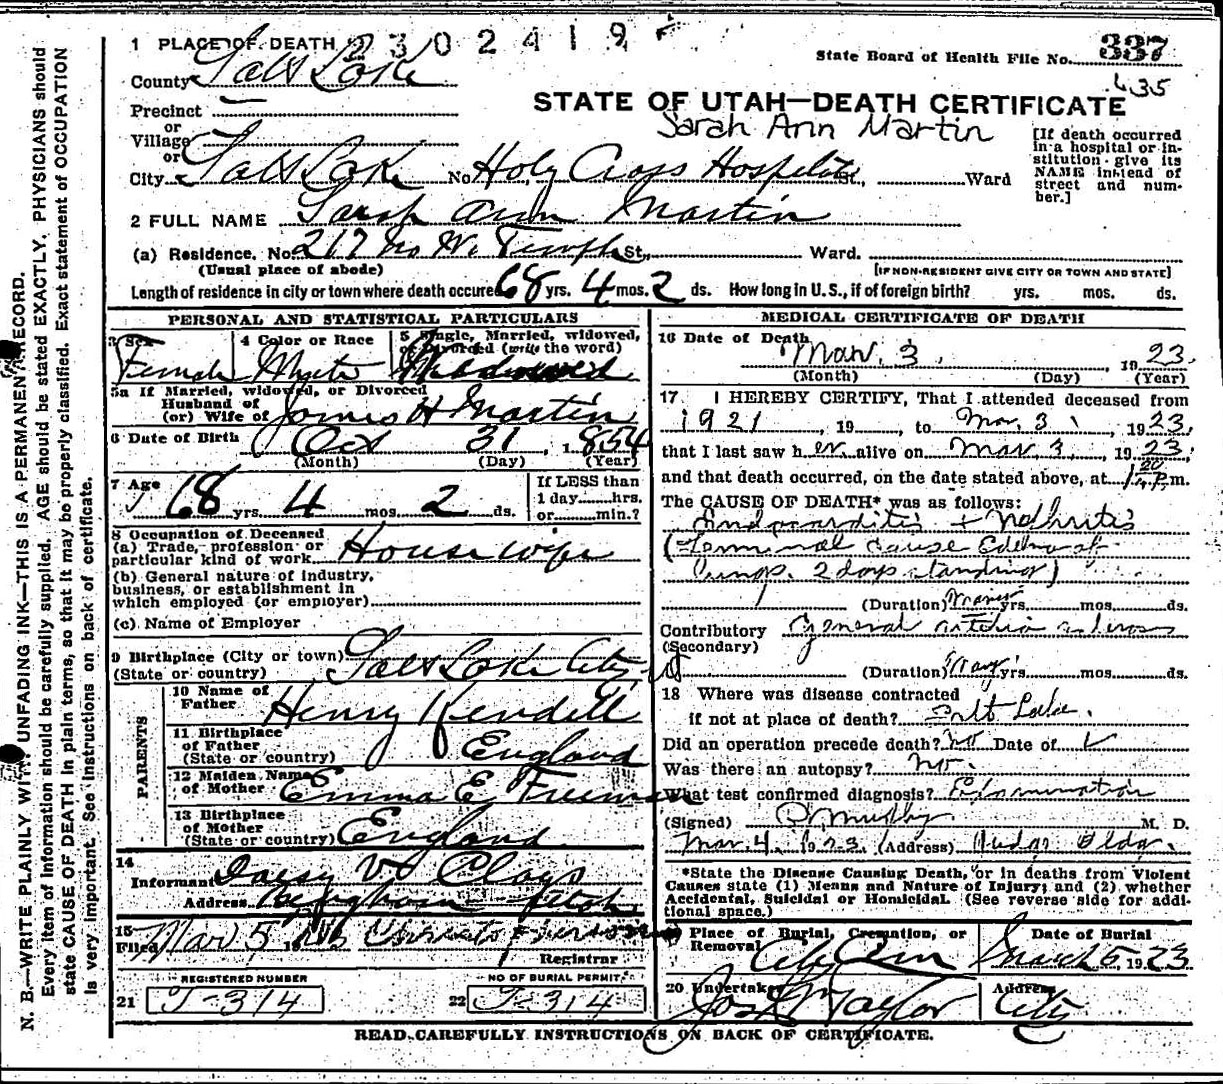 N. B.—WRITE PLAINLY WITH UNFADING INK—THIS IS A PERMANENT RECORD.
Every item of information should be carefully supplied. AGE should be stated EXACTLY. PHYSICIANS should
state CAUSE OF DEATH in plain terms, so that it may be properly classified. Exact statement of OCCUPATION
is very important. See instructions on back of certificate.
2302419
1 PLACE OF DEATH
County Salt Lake
Precinct —
or
Village
or
City Salt Lake No. Holy Cross Hospital St., Ward
State Board of Health File No. 337
435
STATE OF UTAH—DEATH CERTIFICATE
Sarah Ann Martin
[If death occurred
in a hospital or in-
stitution give its
NAME instead of
street and num-
ber.]
2 FULL NAME Sarah Ann Martin
(a) Residence. No. 217 No W. Temple St., Ward.
(Usual place of abode) [IF NON-RESIDENT GIVE CITY OR TOWN AND STATE]
Length of residence in city or town where death occured 68 yrs. 4 mos. 2 ds. How long in U. S., if of foreign birth? yrs. mos. ds.
PERSONAL AND STATISTICAL PARTICULARS
3 Sex
Female
4 Color or Race
White
5 Single, Married, widowed,
or Divorced (write the word)
Widowed
5a If Married, widowed, or Divorced
Husband of
(or) Wife of James H Martin
6 Date of Birth Oct 31, 1854
(Month) (Day) (Year)
7 Age 68 yrs. 4 mos. 2 ds.
If LESS than
1 day......hrs.
or......min.?
8 Occupation of Deceased
(a) Trade, profession or
particular kind of work Housewife
(b) General nature of industry,
business, or establishment in
which employed (or employer)
(c) Name of Employer
9 Birthplace (City or town) Salt Lake City
(State or country)
PARENTS
10 Name of
Father Henry Kendell
11 Birthplace
of Father
(State or country) England
12 Maiden Name
of Mother Emma E Freeman
13 Birthplace
of Mother
(State or country) England
14
Informant Daisy Clays
Address Bingham Utah
15
Filed Mar 5
Registrar
REGISTERED NUMBER
21 J-314
NO OF BURIAL PERMIT
22 J-314
MEDICAL CERTIFICATE OF DEATH
16 Date of Death
Mar. 3, 1923.
(Month) (Day) (Year)
17. I HEREBY CERTIFY, That I attended deceased from
1921, 19 , to Mar. 3, 1923,
that I last saw her alive on Mar. 3, 1923,
and that death occurred, on the date stated above, at 1 20 P.m.
The CAUSE OF DEATH* was as follows:
Endocarditis + Nephritis
(Terminal cause Edema of
lungs. 2 days standing)
(Duration) Many yrs. mos. ds.
Contributory General arterio sclerosis
(Secondary)
(Duration) Many yrs. mos. ds.
18 Where was disease contracted
if not at place of death? Salt Lake.
Did an operation precede death? No Date of
Was there an autopsy? No.
What test confirmed diagnosis? Examination
(Signed) M. D.
Mar. 4, 1923. (Address) Judge Bldg.
*State the Disease Causing Death, or in deaths from Violent
Causes state (1) Means and Nature of Injury; and (2) whether
Accidental, Suicidal or Homicidal. (See reverse side for addi-
tional space.)
19 Place of Burial, Cremation, or
Removal
Date of Burial
March 5, 1923
20 Undertaker
Jos Wm Taylor
Address
City
READ CAREFULLY INSTRUCTIONS ON BACK OF CERTIFICATE.